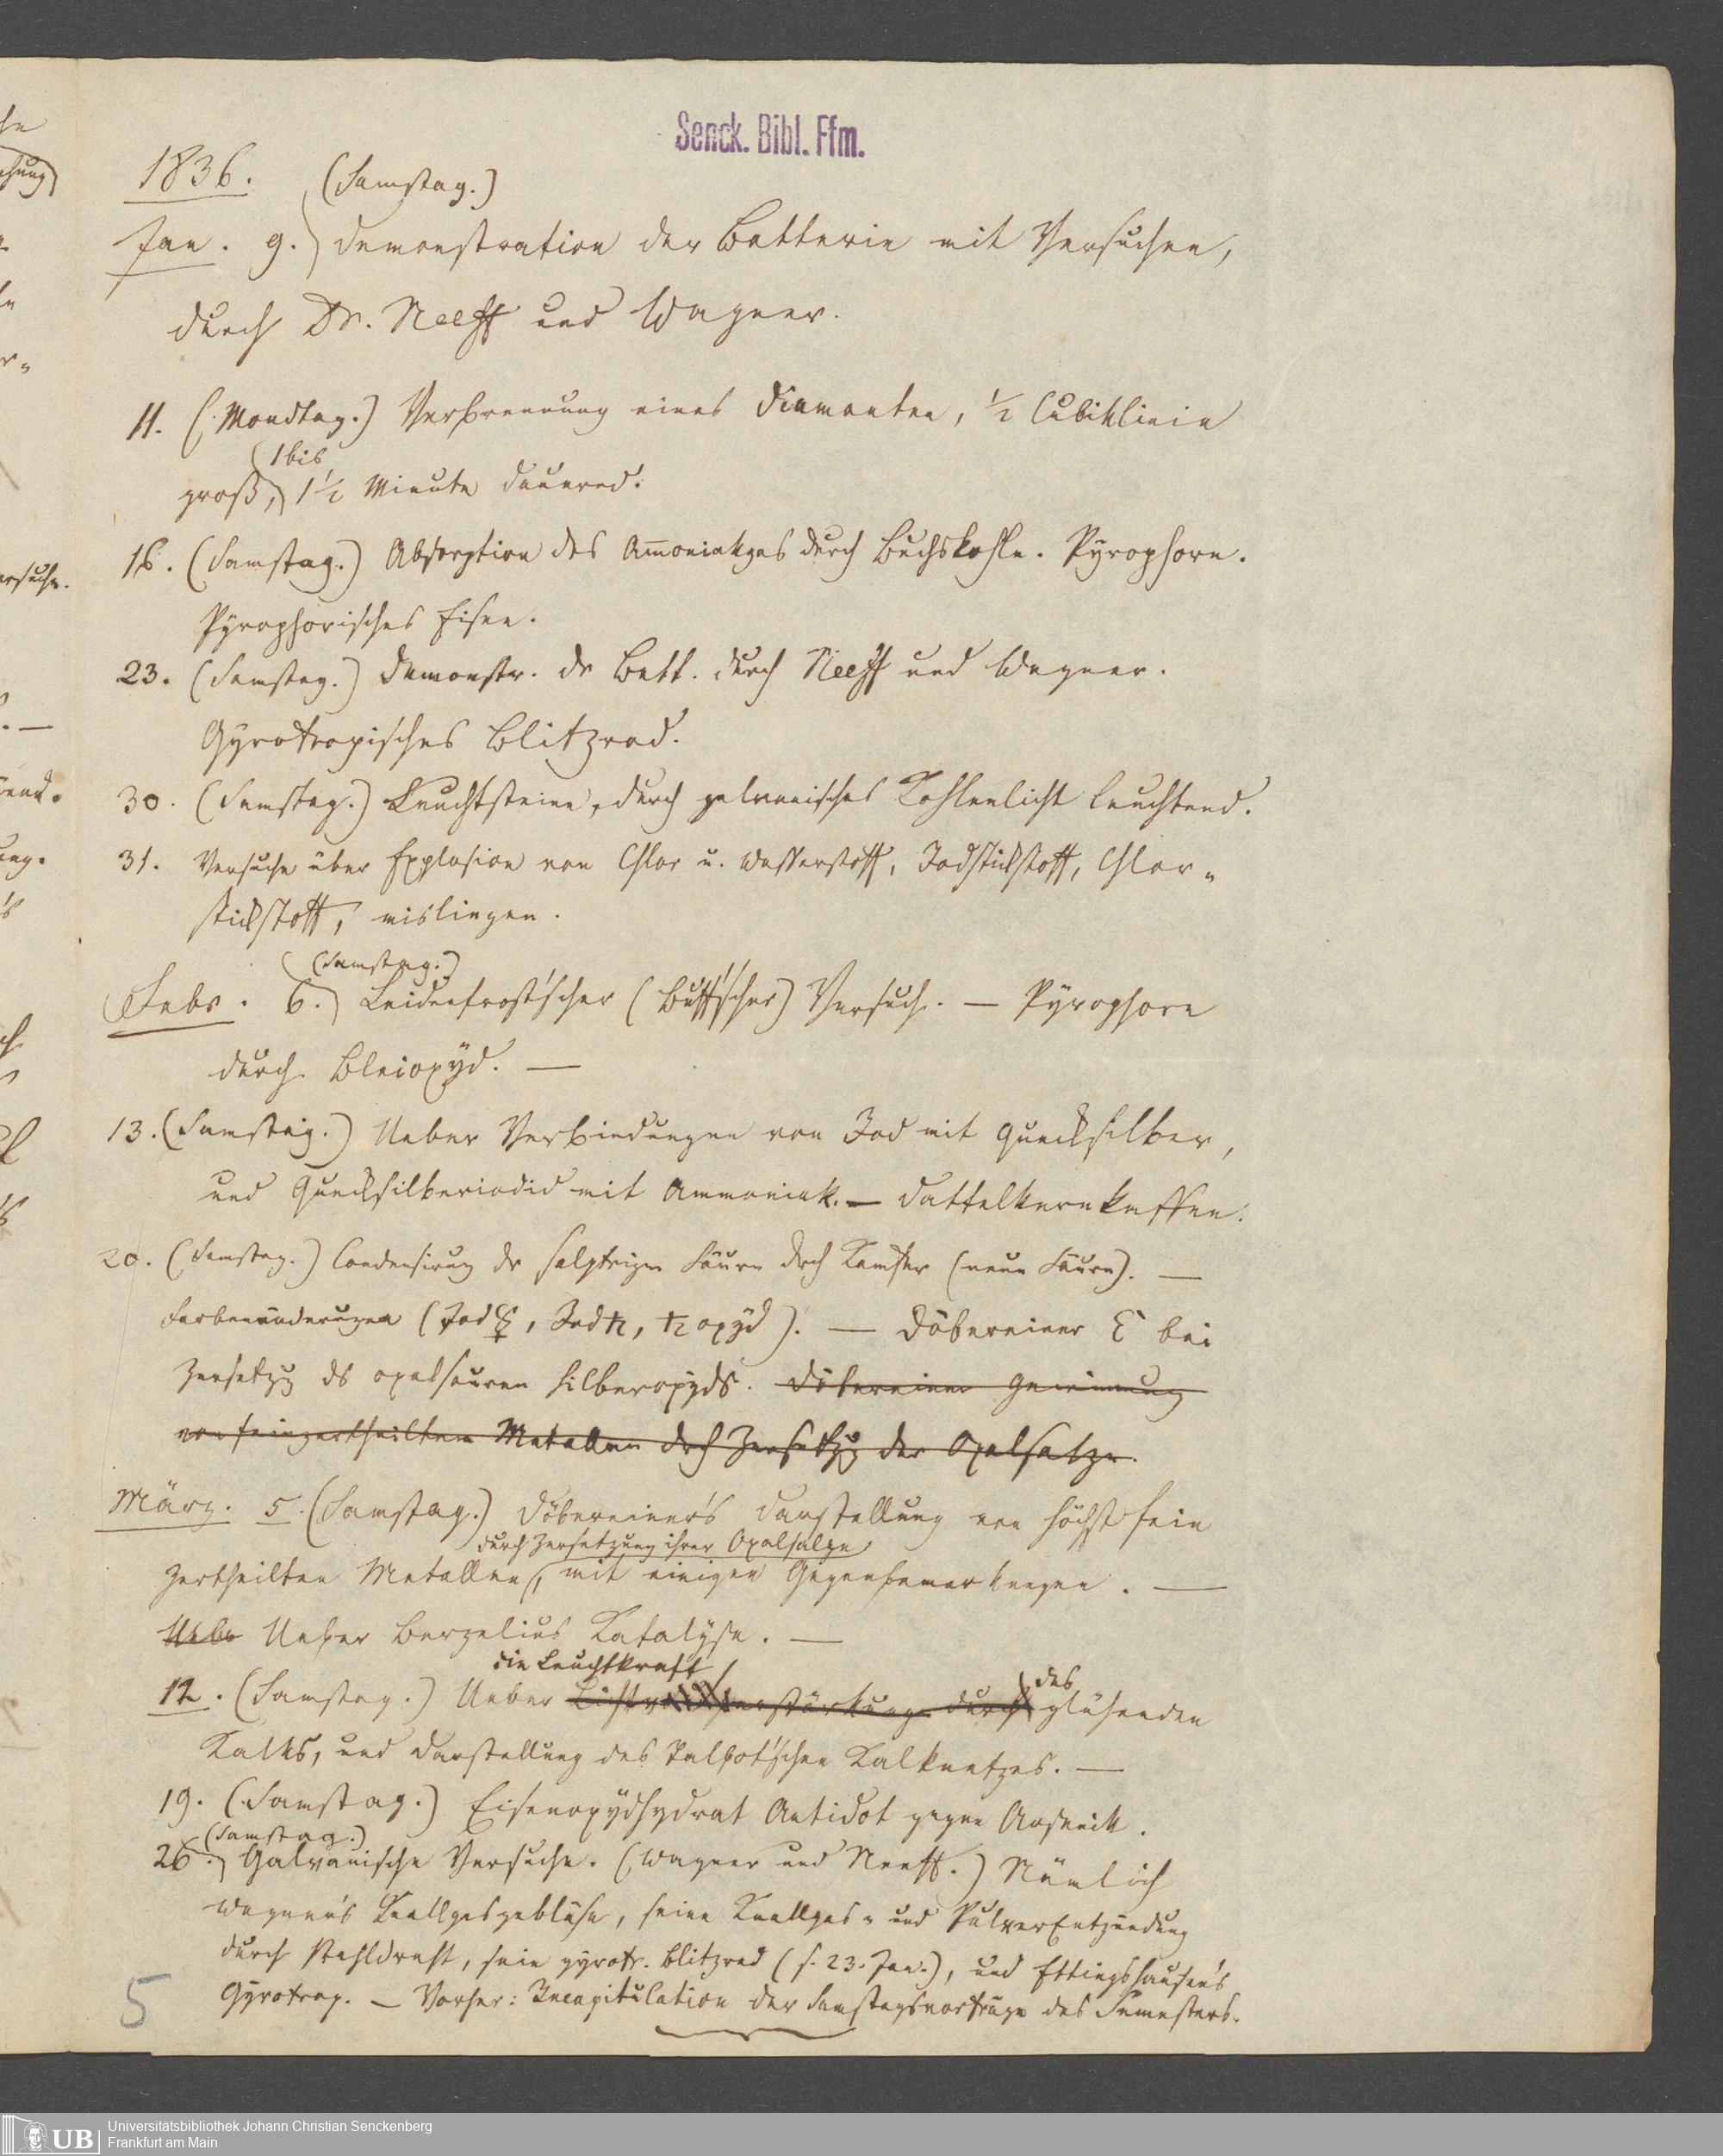 Senck. Bibl. Ffm.
1836. (Samstag.)
Jan. 9. Demonstration der Batterie mit Versuchen,
durch Dr. Neeff und Wagner.
11. (Mondtag.) Verbrennung eines Diamanten, 1/2 Cubiklinie
1 bis
groß, 1 1/2 Minute dauernd.
16. (Samstag.) Absorption des Am̅oniakgas durch Buchskohle. Pyrophore.
Pyrophorisches Eisen.
23. (Samstag.) Demonstr. der Batt. durch Neeff und Wagner.
Gyrotropisches Blitzrad.
30. (Samstag.) Leuchtsteine, durch galvanisches Kohlenlicht leuchtend.
31. Versuche über Explosion von Chlor u. Wasserstoff, Jodstickstoff, Chlor-
stickstoff, mislingen.
(Samstag.)
Febr. 6. Leidenfrost'scher (Buff'scher) Versuch. — Pyrophore
durch Bleioxyd. —
13. (Samstag.) Ueber Verbindungen von Jod mit Quecksilber,
und Quecksilberiodid mit Ammoniak. — Dattelkernkaffee.
20. (Samstag.) Condensirung der salptrigen Säure dch Kampfer (neue Säure). —
Farbenänderungen (Jod☿, Jod♄, ♄oxyd). — Döbereiner bei
Zersetzg ds oxalsauren Silberoxyds. Döbereiner Gewinnung
von feinzertheilten Metallen dch Zersetzg der Oxalsalze.
März. 5. (Samstag.) Döbereiner's Darstellung von höchst fein
durch Zersetzung ihrer Oxalsalze
zertheilten Metallen, mit einigen Gegenbemerkungen. —
Uebe Ueber Berzelius Katalyse. —
die Leuchtkraft des
12. (Samstag.) Ueber durch glühenden
Kalks, und Darstellung des Talbot'schen Kalknetzes. —
19. (Samstag.) Eisenoxydhydrat Antidot gegen Arsenik.
(Samstag.)
26. Galvanische Versuche. (Wagner und Neeff.) Nämlich
Wagner's Knallgasgebläse, seine Knallgas- und PulverEntzündung
durch Stahldraht, sein gyrotr. Blitzrad (s. 23. Jan.), und Ettingshausen's
Gyrotrop. — Vorher: Recapitulation der Samstagsvorträge des Semesters.
5
UB Universitätsbibliothek Johann Christian Senckenberg
Frankfurt am Main